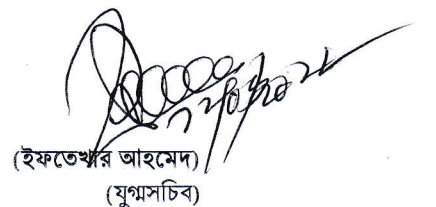 (ইফতেখার আহমেদ)
(যুগ্মসচিব)